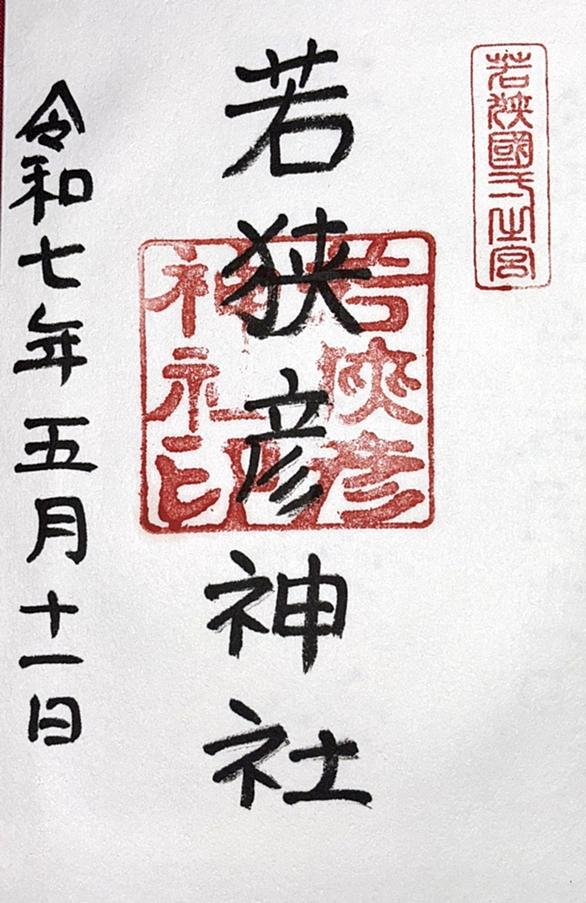 若狹國一之宮
若狭彦神社
若狹彦
神社印
令和七年五月十一日